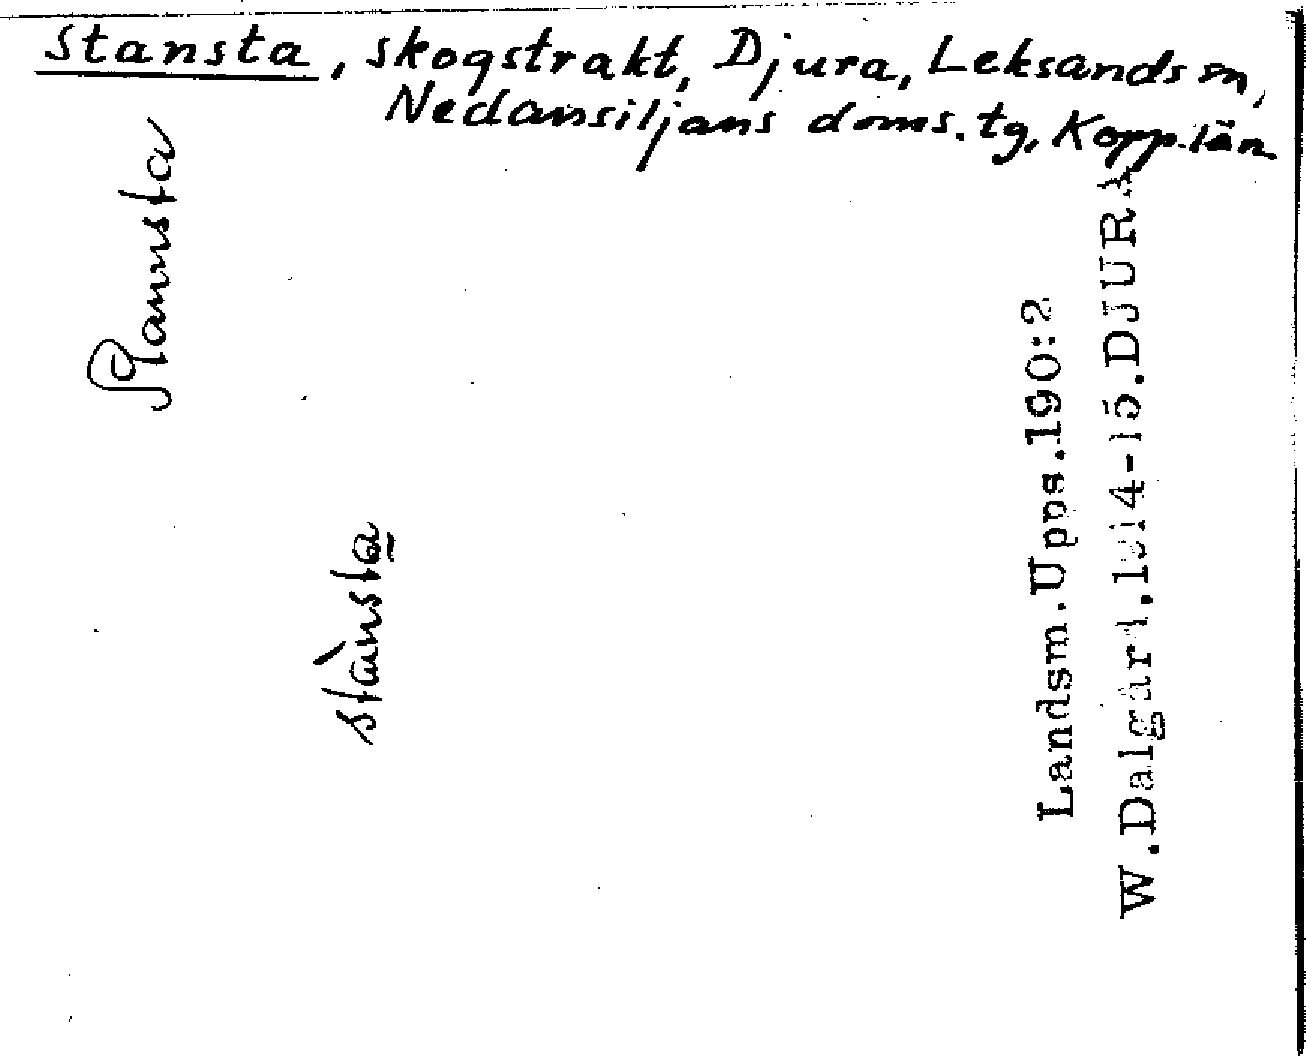 Stansta, skogstrakt, Djura, Leksands sn,
Nedansiljans doms. tg, Kopp. län
Stannsta
stànsta
Landsm.Upps.190:2
W.Dalgård.1914-15.DJURA